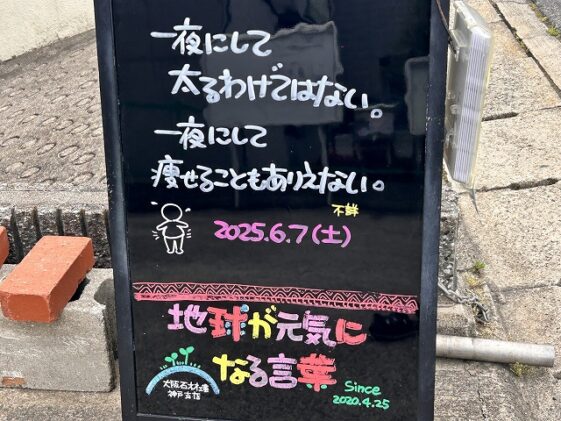 一夜にして
太るわけではない。
一夜にして
痩せることもありえない。
不鮮
2025.6.7(土)
地球が元気に
なる言葉
大阪石材工業
神戸支店
Since
2020.4.25